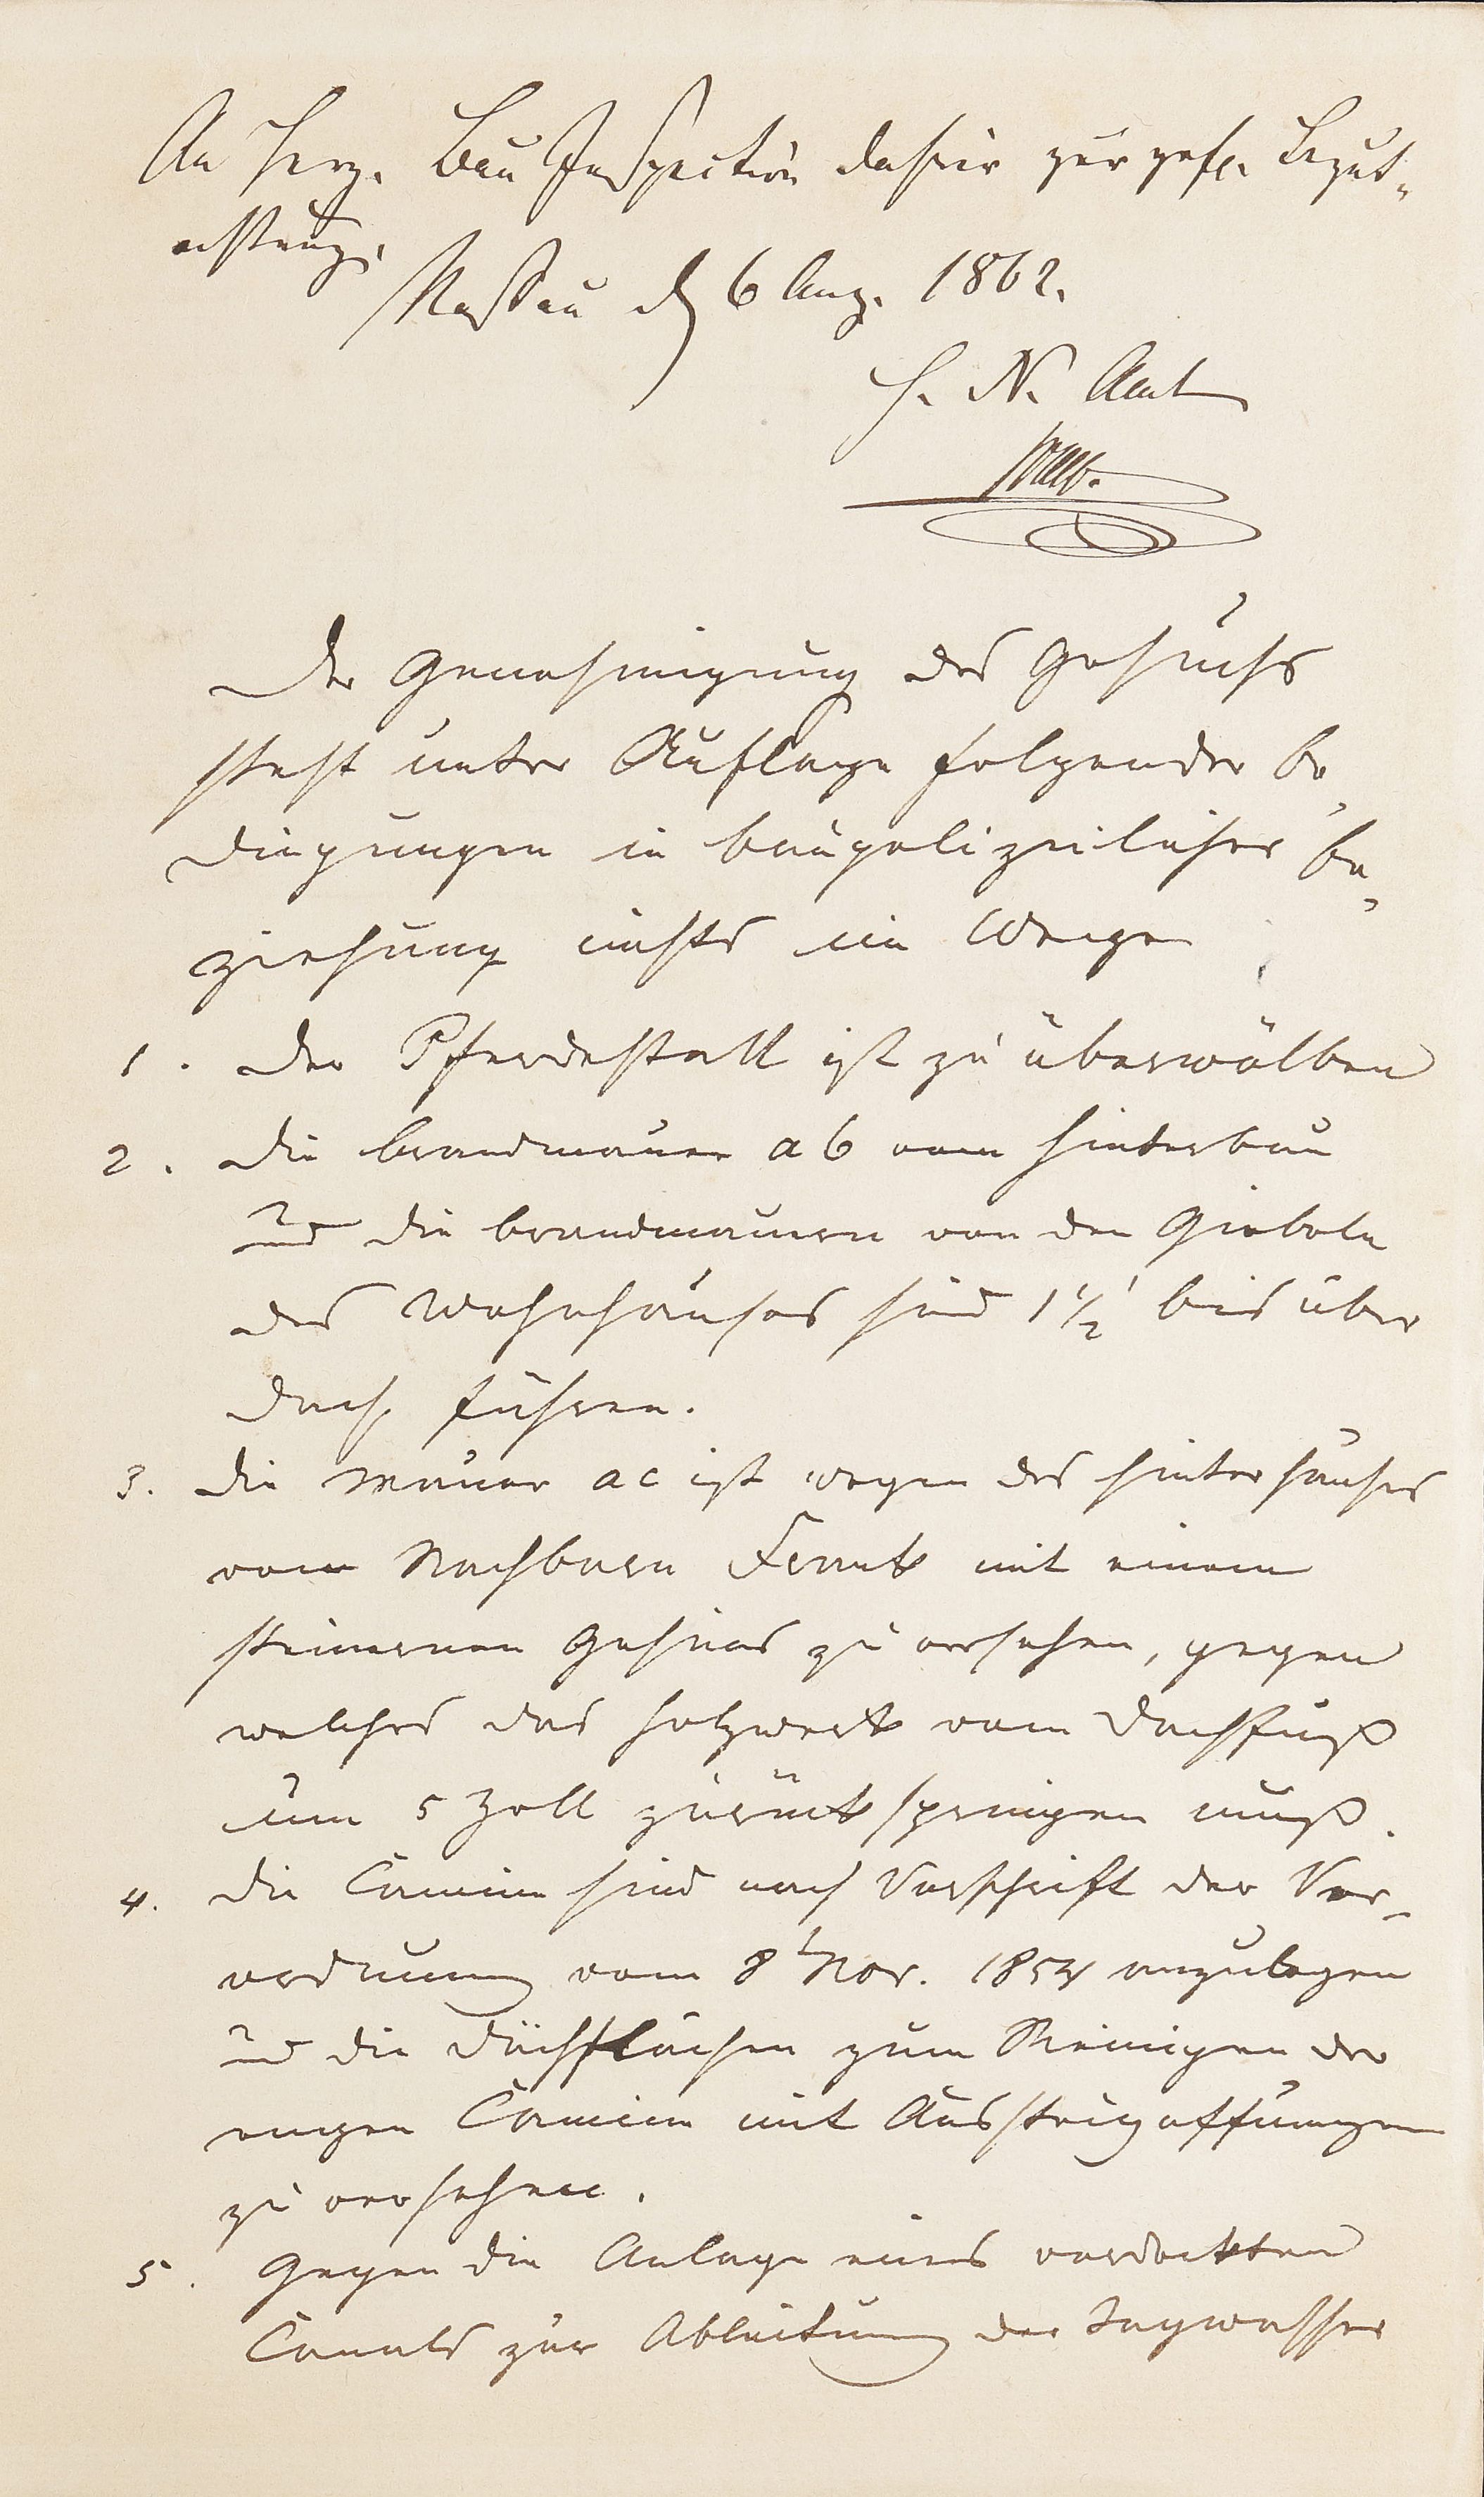 An Herz. Bau Inspection dahier zur gefl. Begut-
achtung.
Nassau d 6 Aug. 1862.
H. N. Amt
Der Genehmigung des Gesuchs
steht unter Auflage folgender be-
dingungen in baupolizeilicher be-
ziehung nichts im Wege
1. Der Pferdestall ist zu überwölben
2. die brandmauer ab vom hinterbau
und die brandmauern von den Giebeln
des Wohnhauses sind 1½' bis über
dach führen.
3. die Mauer ac ist wegen des hinterhauses
vom Nachbarn mit einem
steinernen Gesims zu versehen, gegen
welches das holzwerk vom Dachfuß
um 5 Zoll zurückspringen muß.
4. die Camine sind nach Vorschrift der Ver-
ordnung vom 8t Nov. 1854 anzulegen
und die Dachflächen zum Reinigen der
engen Camine mit Aussteigoffnungen
zu versehen.
5. Gegen die Anlage eines verdeckten
Canals zur Ableitung der Tagwasser